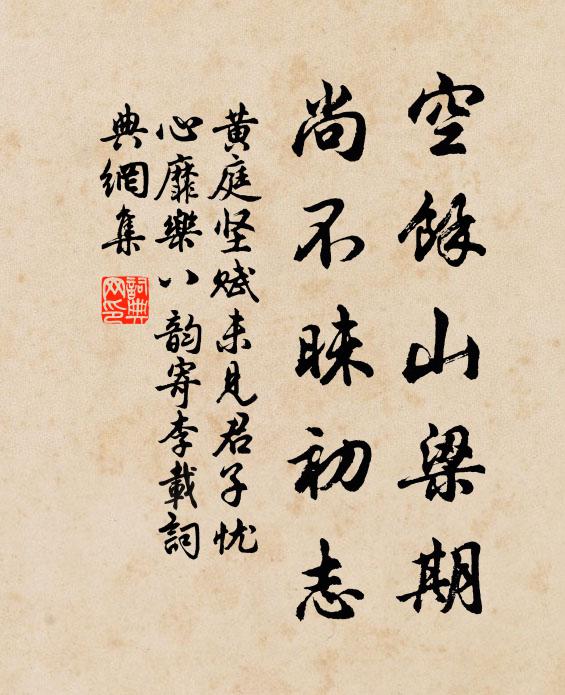 空餘山梁期
尚不昧初志
黄庭坚赋未见君子忧
心靡樂八韵寄李載詞
典網集
詞典网印